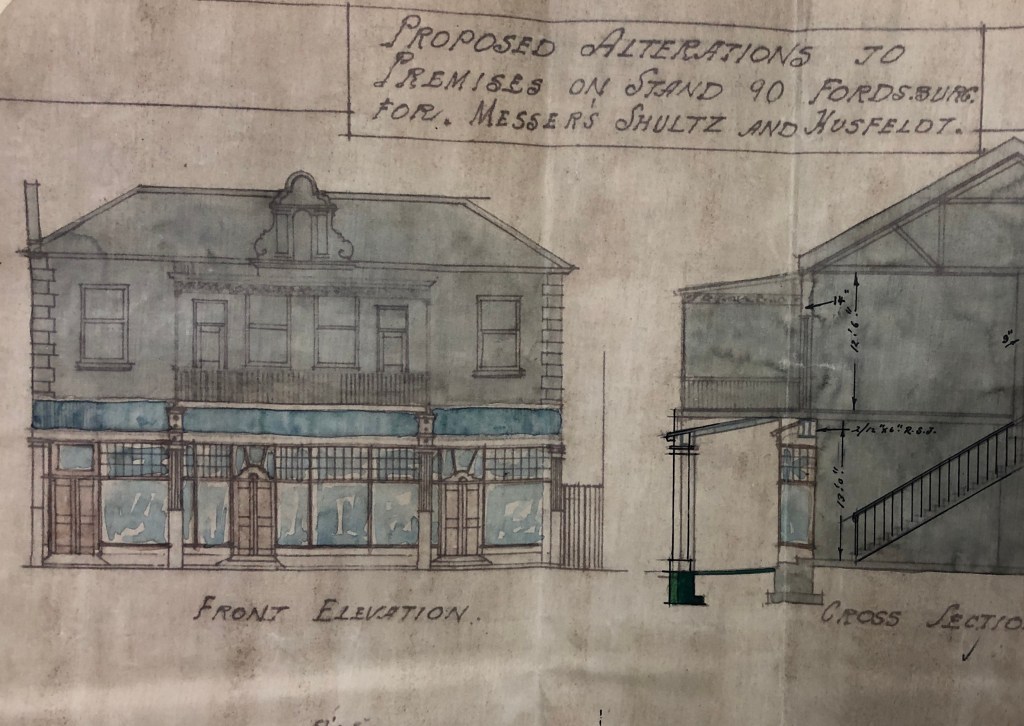 PROPOSED ALTERATIONS TO
PREMISES ON STAND 90 FORDSBURG.
FOR. MESSER'S SHULTZ AND HUSFELDT.
14"
12'.6"
9"
2/12"x6" R.S.J.
13'.0"
FRONT ELEVATION.
CROSS SECTIO